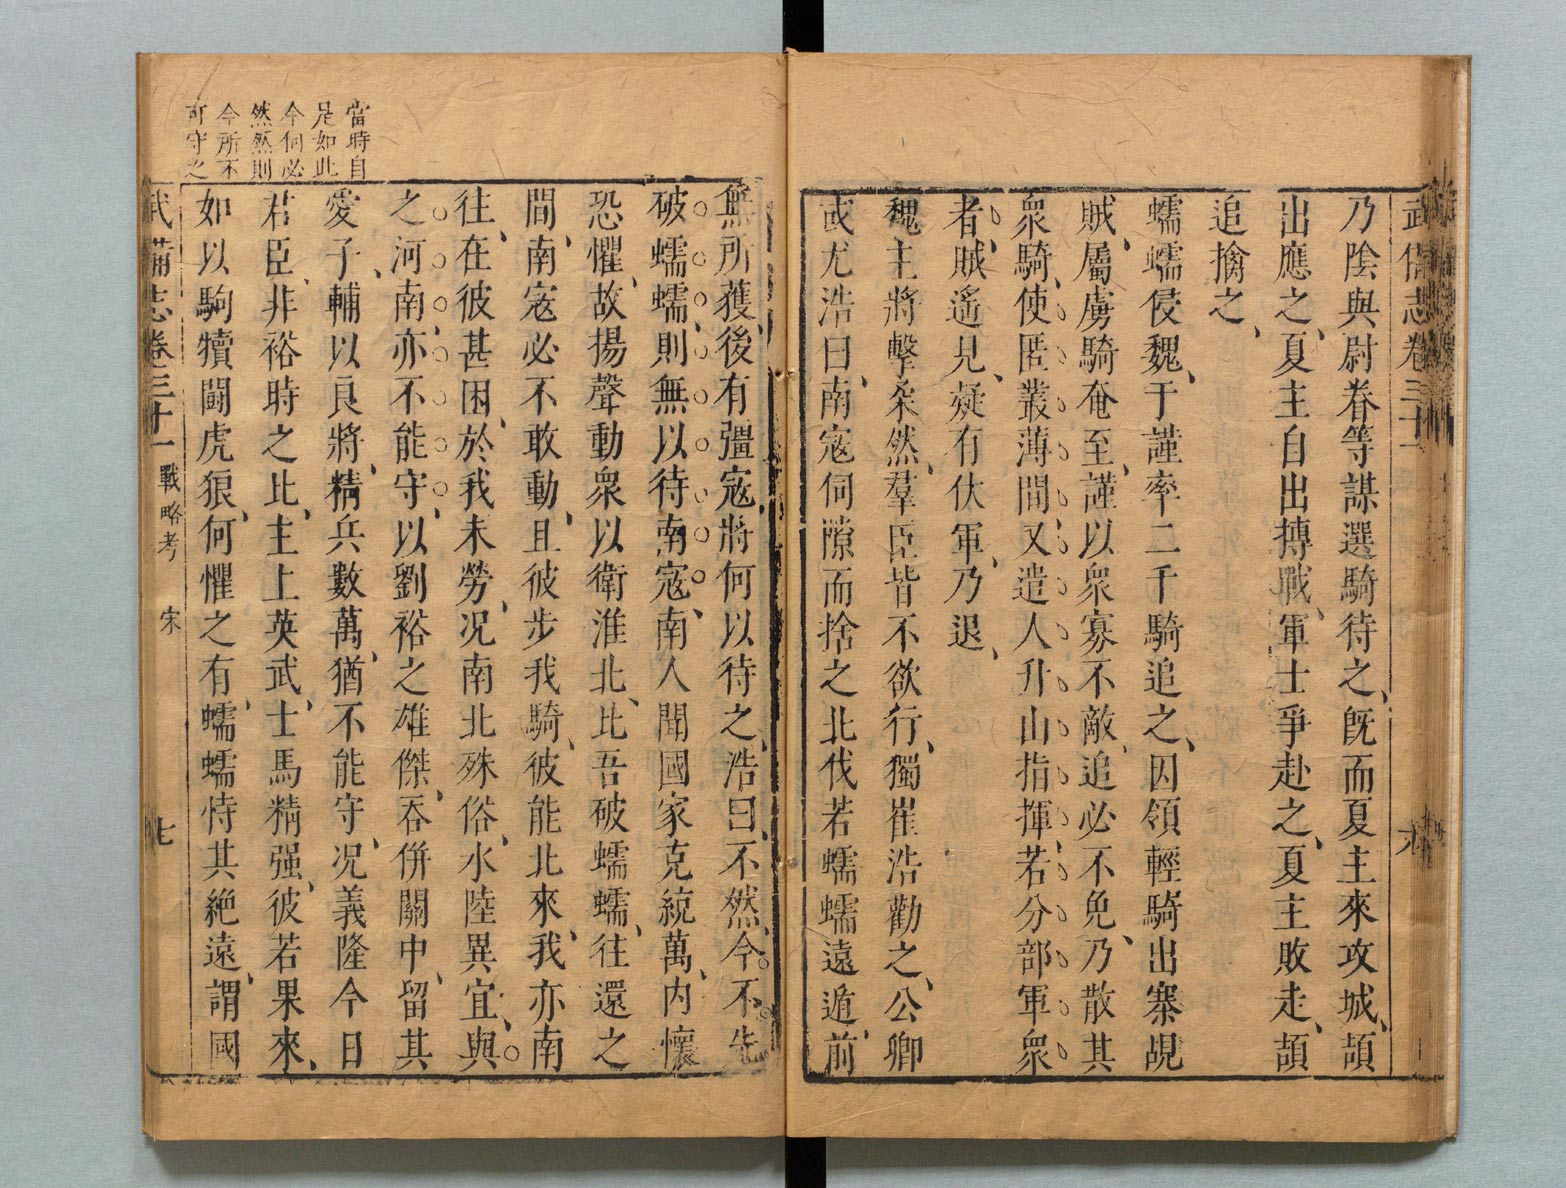 武備志卷三十一
六
乃陰與尉眷等謀選騎待之、旣而夏主來攻城、頡
出應之、夏主自出搏戰、軍士爭赴之、夏主敗走、頡
追擒之、
蠕蠕侵魏、于謹率二千騎追之、因領輕騎出塞覘
賊、屬虜騎奄至、謹以衆寡不敵、追必不免、乃散其
衆騎、使匿叢薄間又遣人升山指揮、若分部軍衆
者、賊遙見、疑有伏軍、乃退、
魏主將擊柔然、羣臣皆不欲行、獨崔浩勸之、公卿
或尤浩曰、南寇伺隙而捨之北伐若蠕蠕遠遁、前
無所獲、後有彊寇、將何以待之、浩曰、不然、今不先
破蠕蠕、則無以待南寇、南人聞國家克統萬、内懷
恐懼、故揚聲動衆以衛淮北、比吾破蠕蠕、往還之
間、南寇必不敢動、且彼步我騎、彼能北來、我亦南
往、在彼甚困、於我未勞、况南北殊俗、水陸異宜、與
之河南亦不能守、以劉裕之雄傑、吞併關中、留其
愛子、輔以良將、精兵數萬、猶不能守、况義隆今日
君臣、非裕時之比、主上英武、士馬精强、彼若果來、
如以駒犢鬭虎狼、何懼之有、蠕蠕恃其絶遠、謂國
當時自
是如此
今何必
然然則
今所不
可守之
武備志卷三十一 戰略考 宋
七